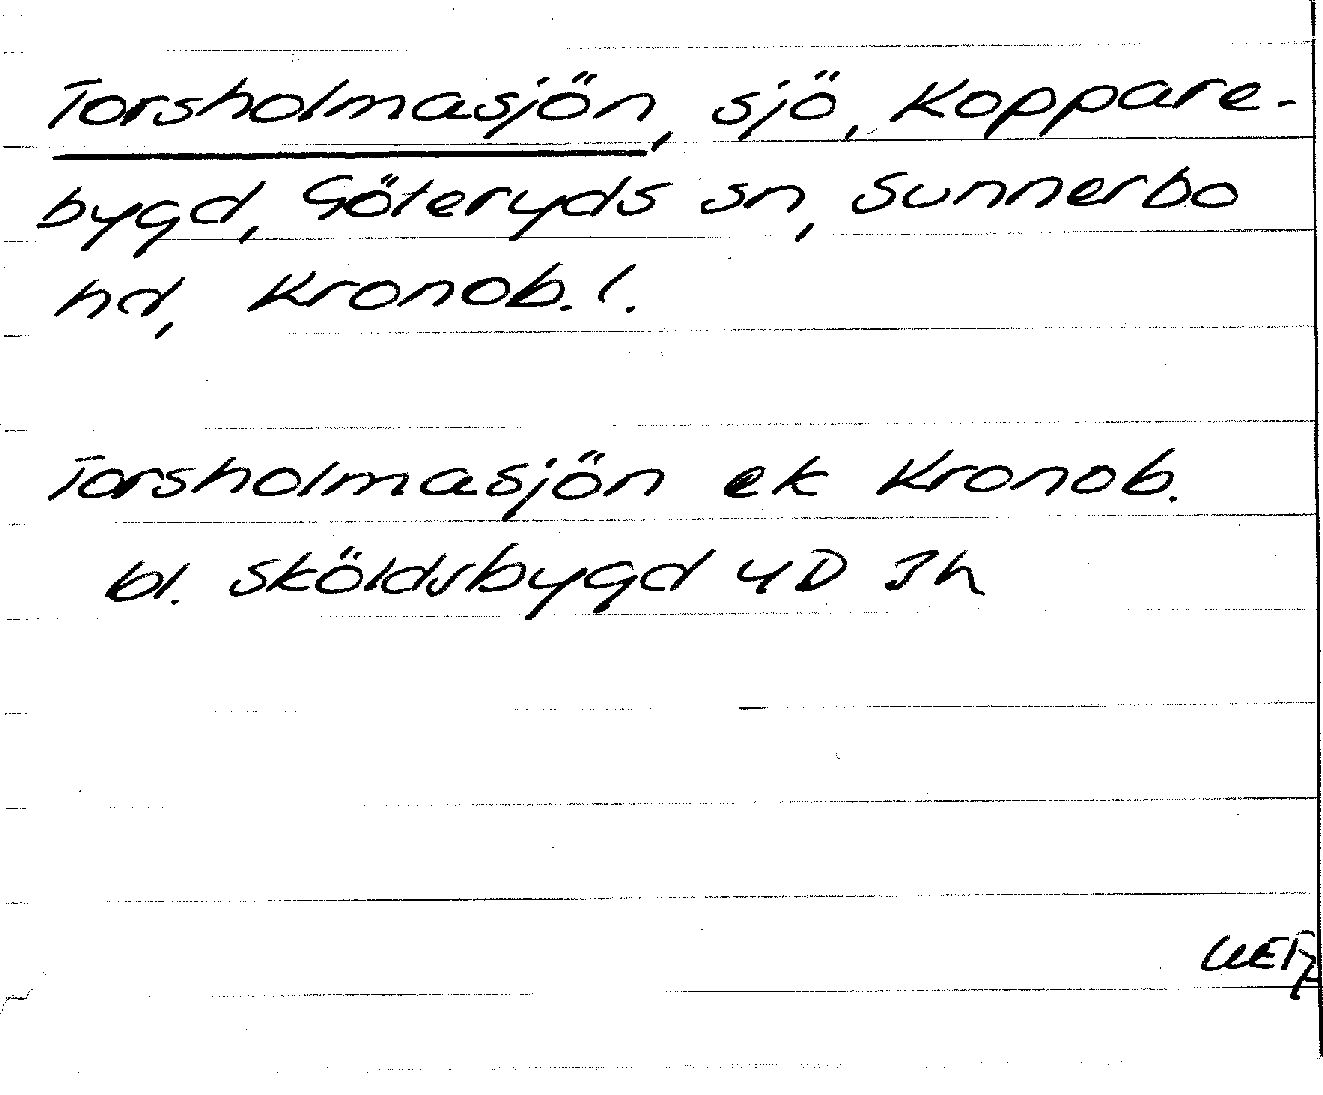 Torsholmasjön, sjö, Koppare-
bygd, Göteryds sn, Sunnerbo
hd, Kronob. l.
Torsholmasjön ek Kronob.
bl. Sköldsbygd 4D 3h